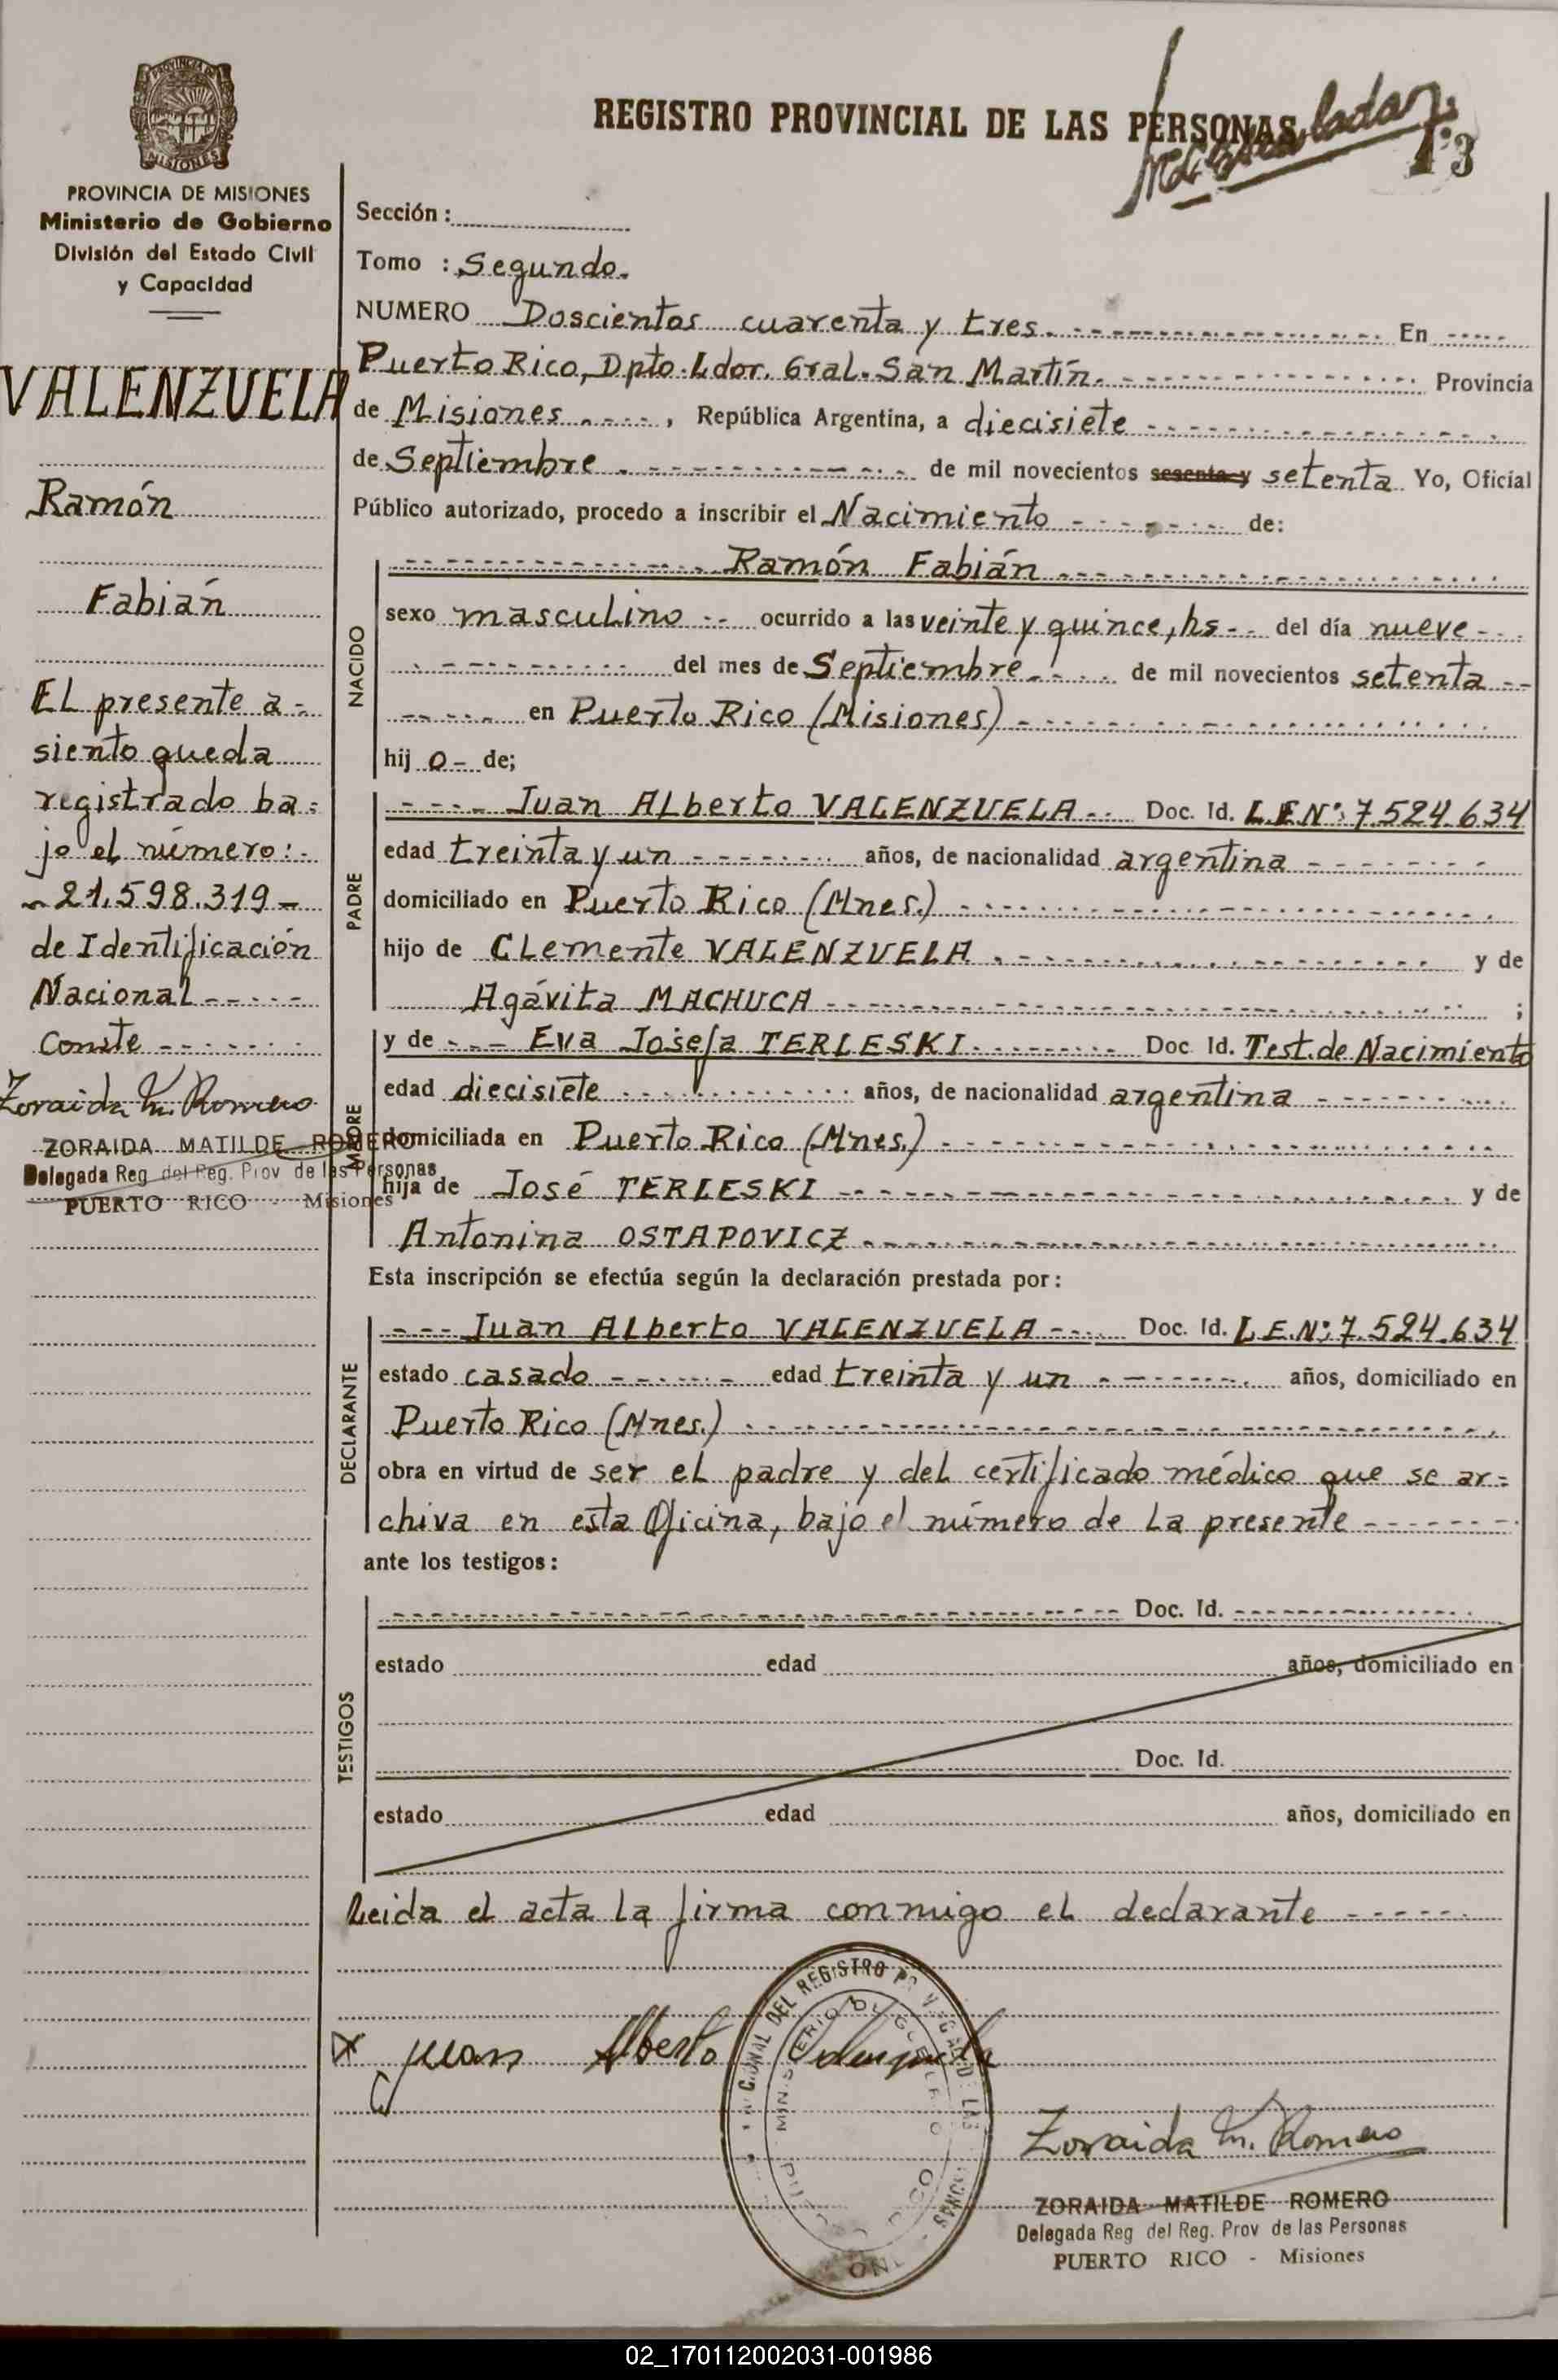 PROVINCIA DE MISIONES
Ministerio de Gobierno
División del Estado Civil
y Capacidad
VALENZUELA
Ramón
Fabián
El presente a-
siento queda
registrado ba-
jo el número:-
-21.598.319-
de Identificación
Nacional
Conste
Zoraida M. Romero
ZORAIDA MATILDE ROMERO
Delegada Reg del Reg. Prov de las Personas
PUERTO RICO - Misiones
REGISTRO PROVINCIAL DE LAS PERSONAS
Sección:
Tomo : Segundo.
NUMERO Doscientos cuarenta y tres. En
Puerto Rico, Dpto. Ldor. Gral. San Martín. Provincia
de Misiones, República Argentina, a diecisiete
de Septiembre de mil novecientos sesenta y setenta Yo, Oficial
Público autorizado, procedo a inscribir el Nacimiento de:
NACIDO
Ramón Fabián
sexo masculino ocurrido a las veinte y quince, hs del día nueve
del mes de Septiembre de mil novecientos setenta
en Puerto Rico (Misiones)
hij o- de;
PADRE
Juan Alberto VALENZUELA Doc. Id. L.E.Nº: 7.524.634
edad treinta y un años, de nacionalidad argentina
domiciliado en Puerto Rico (Mnes.)
hijo de Clemente VALENZUELA y de
Agávita MACHUCA ;
MADRE
y de Eva Josefa TERLESKI Doc Id. Test. de Nacimiento
edad diecisiete años, de nacionalidad argentina
domiciliada en Puerto Rico (Mnes.)
hija de José TERLESKI y de
Antonina OSTAPOVICZ
Esta inscripción se efectúa según la declaración prestada por:
DECLARANTE
Juan Alberto VALENZUELA Doc. Id. L.E.Nº: 7.524.634
estado casado edad treinta y un años, domiciliado en
Puerto Rico (Mnes.)
obra en virtud de ser el padre y del certificado médico que se ar=
chiva en esta Oficina, bajo el número de la presente
ante los testigos:
TESTIGOS
Doc. Id.
estado edad años, domiciliado en
Doc. Id.
estado edad años, domiciliado en
Leida el acta la firma conmigo el declarante
Juan Alberto Valenzuela
Zoraida M. Romero
ZORAIDA MATILDE ROMERO
Delegada Reg del Reg. Prov de las Personas
PUERTO RICO - Misiones
02_170112002031-001986